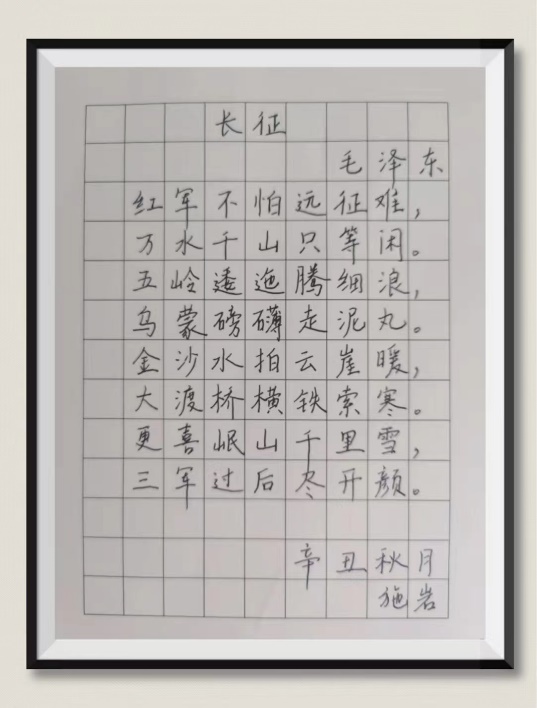 长征
毛泽东
红军不怕远征难，
万水千山只等闲。
五岭逶迤腾细浪，
乌蒙磅礴走泥丸。
金沙水拍云崖暖，
大渡桥横铁索寒。
更喜岷山千里雪，
三军过后尽开颜。
辛丑秋月
施岩